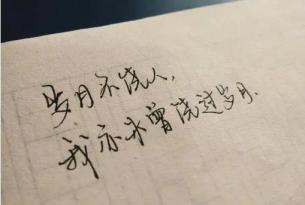 岁月不饶人，
我亦未曾饶过岁月.